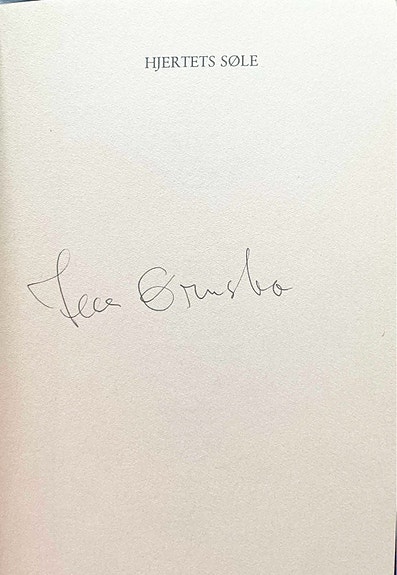 HJERTETS SØLE
Jess Ørnsbo